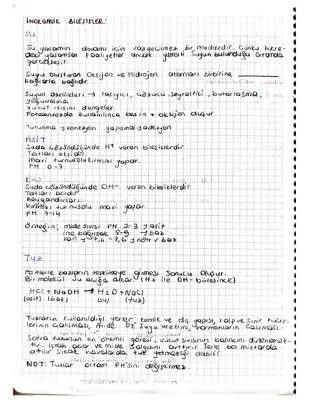 İNORGANİK BİLEŞİKLER:
Su
Su yaşamın devamı için vazgeçilmez bir maddedir. Çünkü hücre-
deki yaşamsal faaliyetler ancak yeterli suyun bulunduğu ortamda
gerçekleşir.
Suyu oluşturan oksijen ve Hidrojen atomları birbirine
bağlarla bağlıdır
Suyun özellikleri → taşıyıcı, çözücü, seyreltici, buharlaşma,
yoğunlaşma
Vücut ısısını dengeler.
Fotosentezde kullanılınca besin + oksijen oluşur
Tutunma → adezyon
ASİT
Suda çözündüğünde H+ veren bileşiklerdir
Tatları ekşidir.
Mavi turnusolu kırmızı yapar.
PH 0-7
Baz
Suda çözündüğünde OH- veren bileşiklerdir
Tatları acıdır
Kaygandırlar.
Kırmızı turnusolu mavi yapar.
PH 7-14
Örneğin; mide sıvısı PH 2-3 → asit
ince bağırsak 8-9 → baz
kan → 7,4 - 7,6 → nötr / baz
Tuz
Asitlerle bazların tepkimeye girmesi sonucu oluşur.
Bir molekül su açığa çıkar (H+ ile OH- birleşince)
HCl + NaOH → H2O + NaCl
(asit) (baz) (su) (tuz)
Tuzların kullanıldığı yerler: kemik ve diş yapısı, kalp ve sinir hücre-
lerinin çalışması, mide öz suyu üretimi, hormonların çalışması.
Sofra tuzunun en önemli görevi, vücut sıvısının basıncını düzenlemek-
tir. İştah açar ve mide salgısını arttırır. Terle bol miktarda
atılır sıcak havalarda tuz yetmezliği olabilir.
NOT: Tuzlar ortam PH'sini değiştirmez.